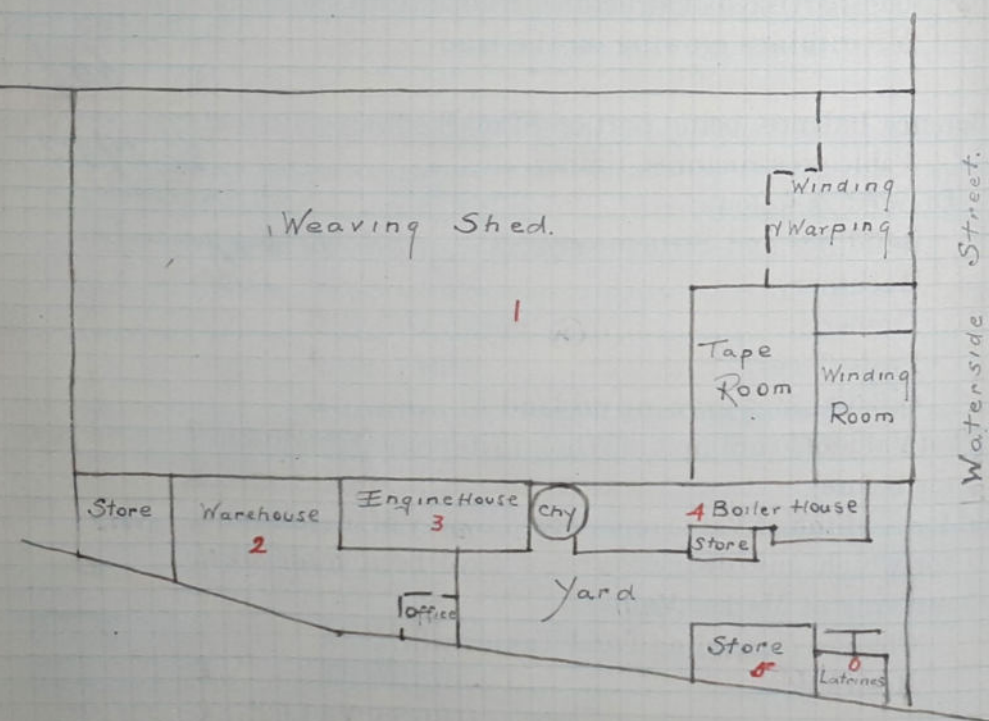 Winding
Weaving Shed.
Warping
1
Tape
Room
Winding
Room
Waterside Street.
Store
Warehouse
2
Engine House
3
chy
4 Boiler House
Store
Yard
Office
Store
5
6
Latrines